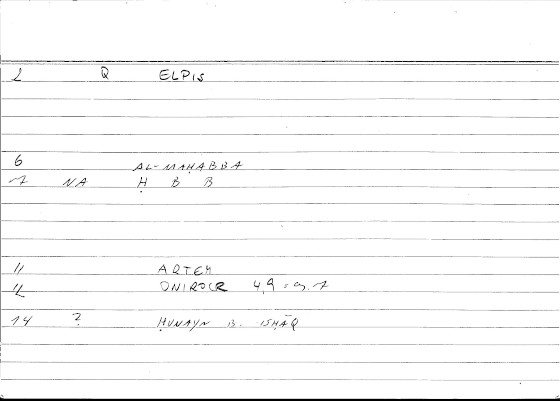 2 Q ELPIS
6 AL-MAḤABBA
7 NA Ḥ B B
11 ARTEM
12 ONIROCR 4,9 =
14 ? ḤUNAYN B. ISḤĀQ